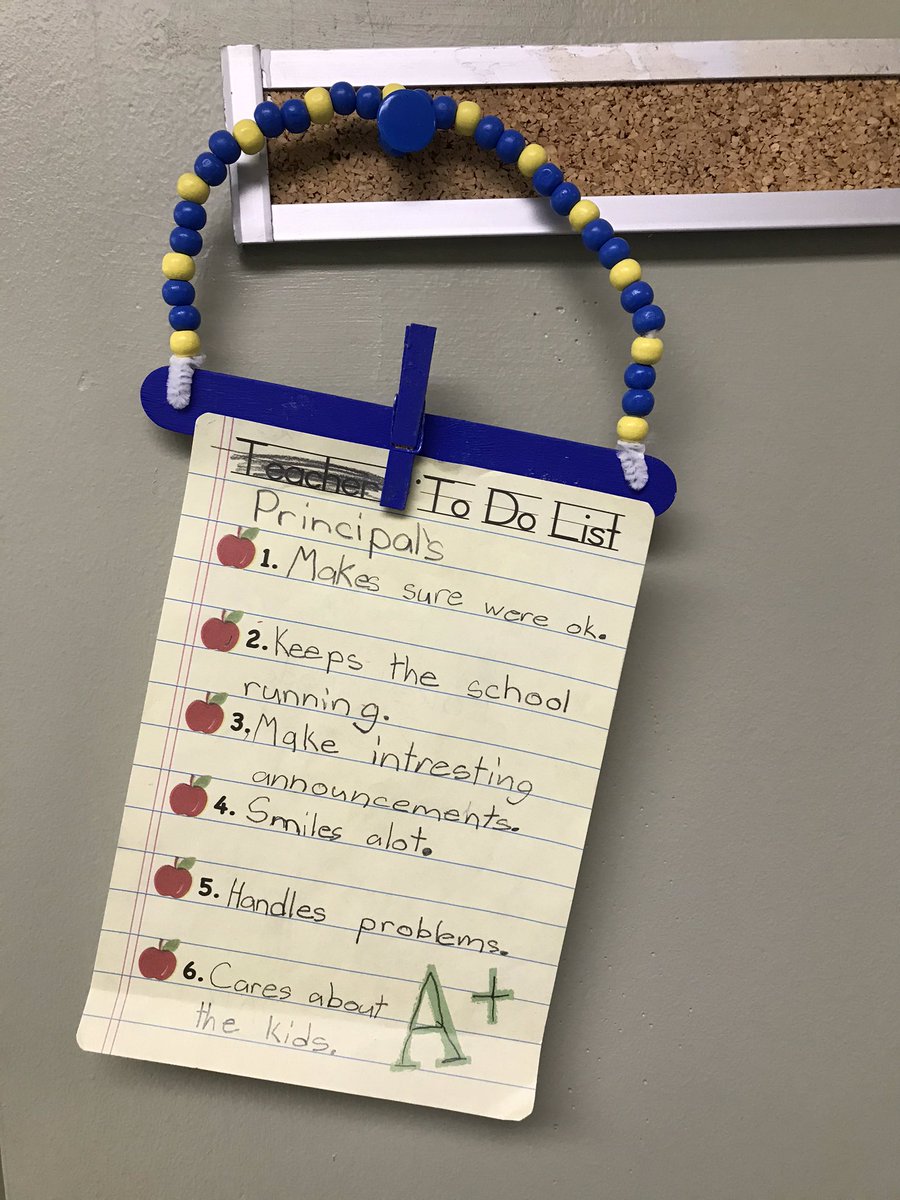 Teacher To Do List
Principal's
1. Makes sure were ok.
2. Keeps the school
running.
3. Make intresting
announcements.
4. Smiles alot.
5. Handles problems.
6. Cares about
the kids.
A+